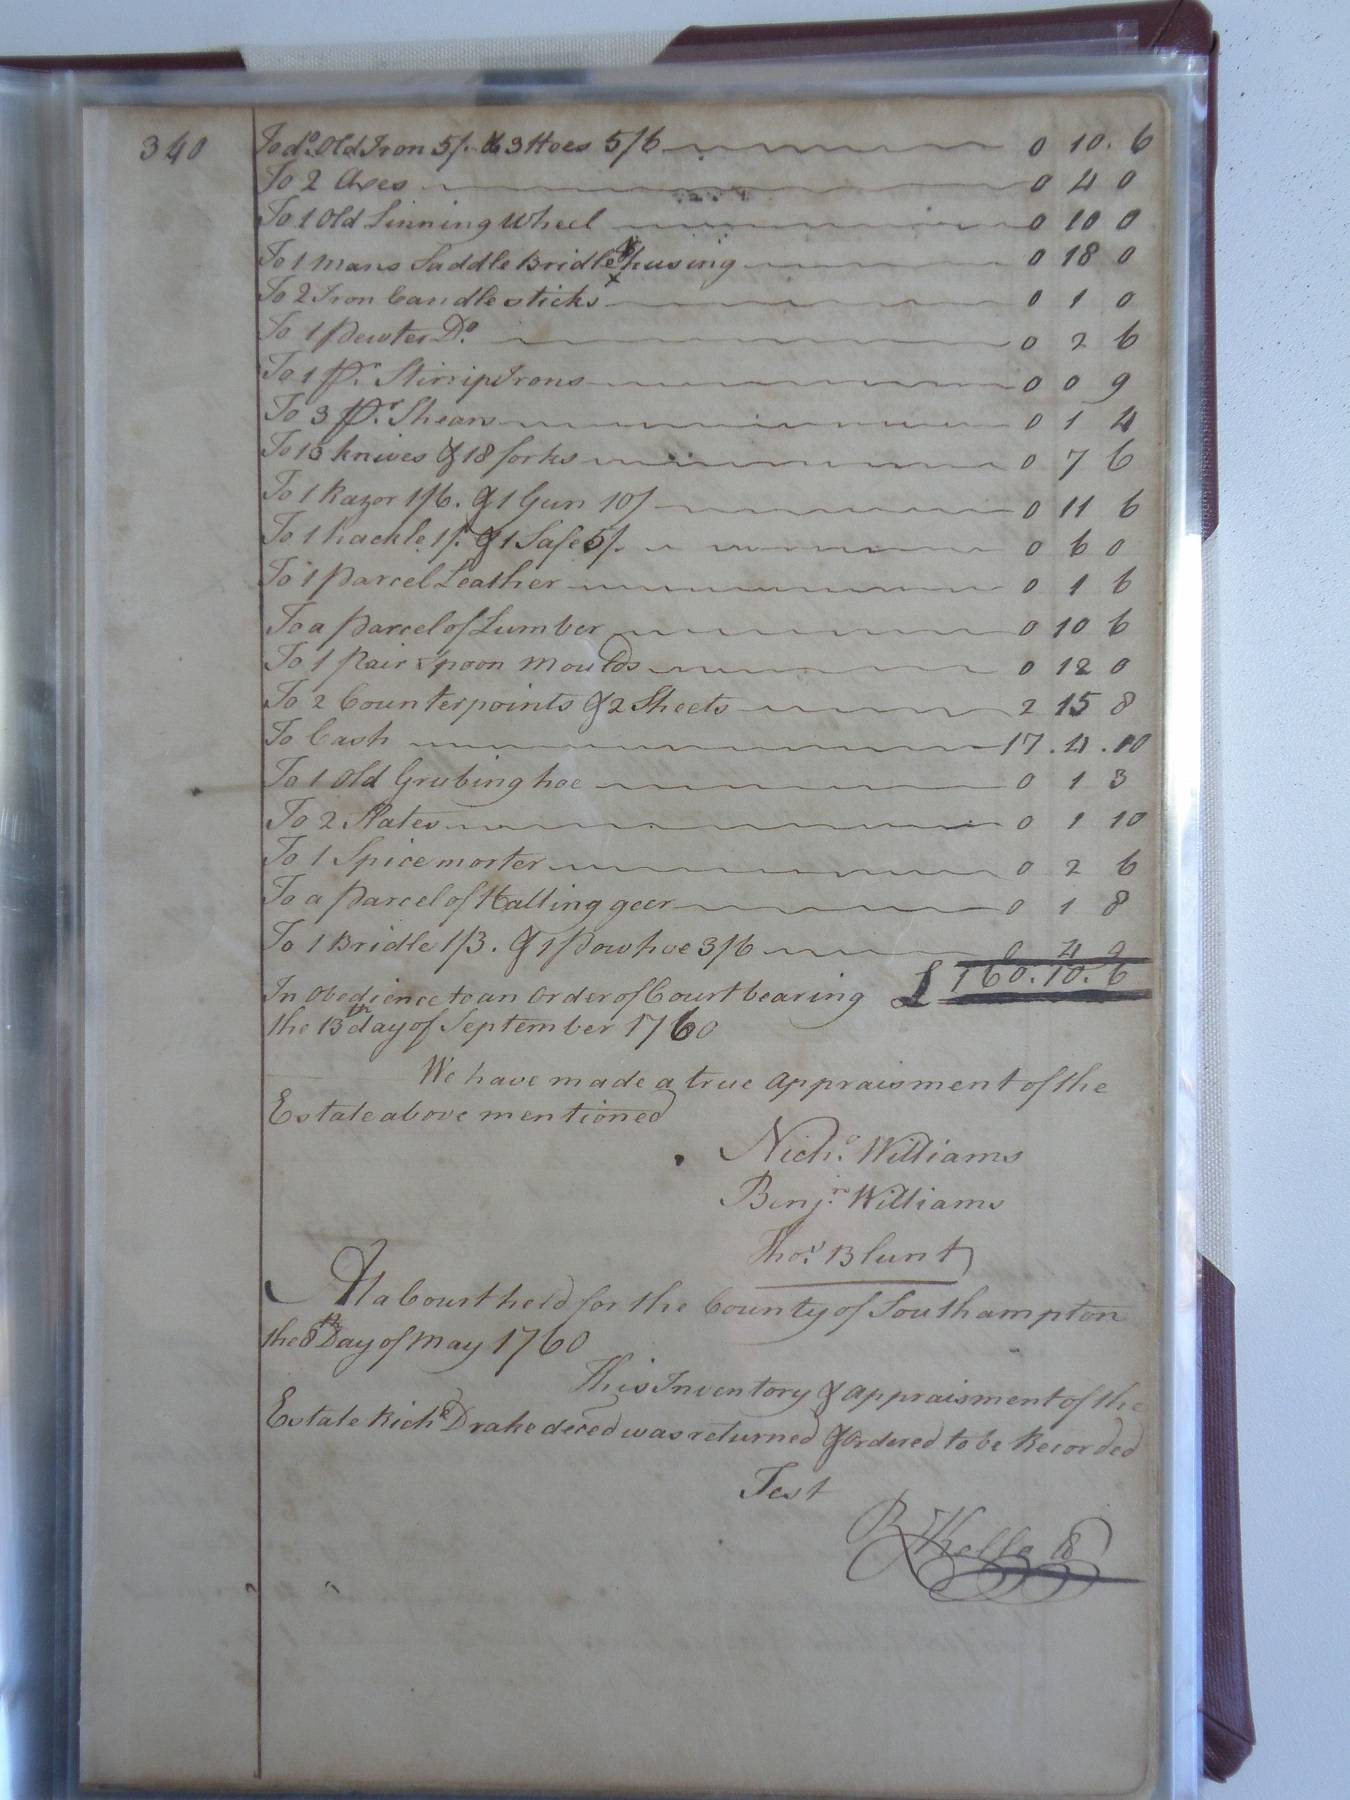 340
To do. Old Iron 5/. & 3 Hoes 5/6 0 10. 6
To 2 Axes 0 4 0
To 1 Old Linning Wheel 0 10 0
To 1 mans Saddle Bridle & husing 0 18 0
To 2 Iron Candlesticks 0 1 0
To 1 Pewter Do. 0 2 6
To 1 Pr. Stirrip Irons 0 0 9
To 3 Pr. Shears 0 1 4
To 13 knives & 18 forks 0 7 6
To 1 Razor 1/6. & 1 Gun 10/ 0 11 6
To 1 hackle 1/. & 1 Safe 5/. 0 6 0
To 1 Parcel Leather 0 1 6
To a Parcel of Lumber 0 10 6
To 1 Pair Spoon Moulds 0 12 0
To 2 Counterpoints & 2 Sheets 2 15 8
To Cash 17. 4. 10
To 1 Old Grubing hoe 0 1 3
To 2 Slates 0 1 10
To 1 Spice morter 0 2 6
To a Parcel of Halling geer 0 1 8
To 1 Bridle 1/3. & 1 Plow hoe 3/6 0 4 9
In Obedience to an Order of Court bearing £ 160. 10. 6
the 13th day of September 1760
We have made a true appraisment of the
Estate above mentioned
Nicho. Williams
Benjn. Williams
Thos. Blunt
At a Court held for the County of Southampton
the 8th Day of May 1760
This Inventory & appraisment of the
Estate Richd Drake deced was returned & Ordered to be Recorded
Test
R Kello